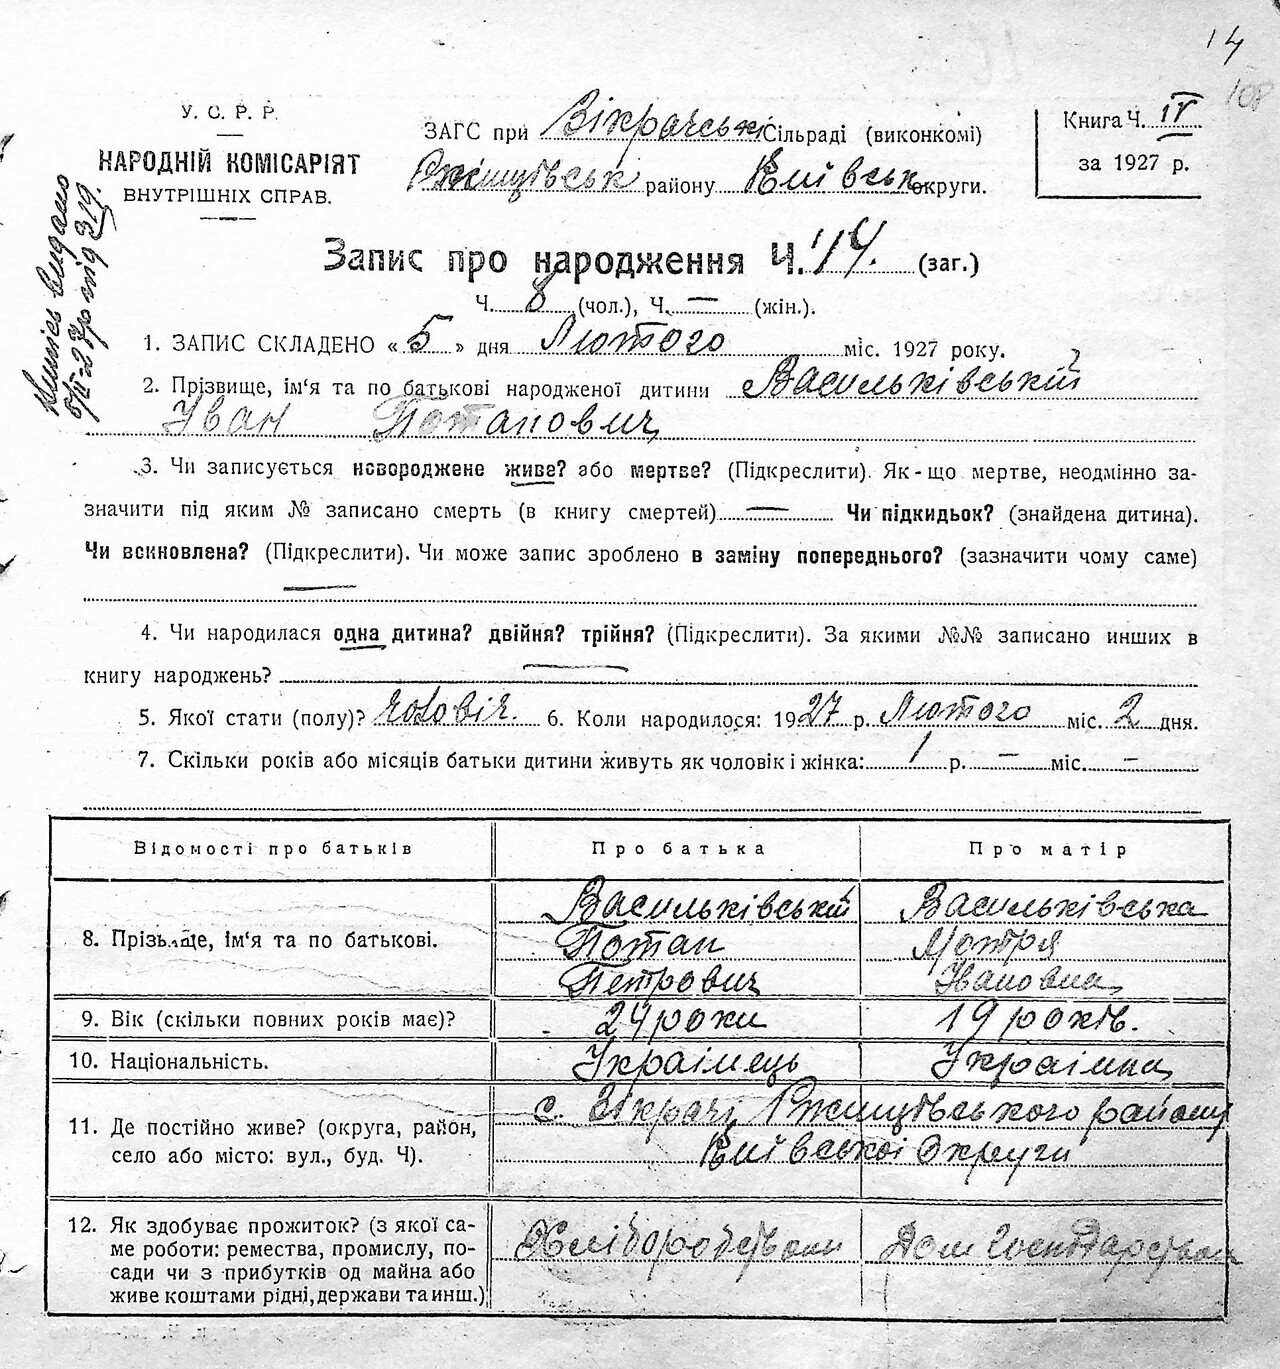 14
108
У. С. Р. Р.
НАРОДНІЙ КОМІСАРІЯТ
ВНУТРІШНІХ СПРАВ.
ЗАГС при Віхрачські Сільраді (виконкомі)
Ржищівськ району Київськ округи.
Книга Ч. IV
за 1927 р.
Запис про народження Ч. 14. (заг.)
Ч. 8 (чол.), Ч. — (жін.).
1. ЗАПИС СКЛАДЕНО « 5 » дня Лютого міс. 1927 року.
2. Прізвище, ім'я та по батькові народженої дитини Васильківський
Іван Потапович
3. Чи записується новороджене живе? або мертве? (Підкреслити). Як-що мертве, неодмінно за-
значити під яким № записано смерть (в книгу смертей) — Чи підкидьок? (знайдена дитина).
Чи всиновлена? (Підкреслити). Чи може запис зроблено в заміну попереднього? (зазначити чому саме)
4. Чи народилася одна дитина? двійня? трійня? (Підкреслити). За якими №№ записано инших в
книгу народжень?
5. Якої стати (полу)? чоловіч. 6. Коли народилося: 1927 р. Лютого міс. 2 дня.
7. Скільки років або місяців батьки дитини живуть як чоловік і жінка: 1 р. — міс. —
Відомості про батьків
Про батька
Про матір
8. Прізвище, ім'я та по батькові.
Васильківський
Потап
Петрович
Васильківська
Мотря
Івановна
9. Вік (скільки повних років має)?
24 роки
19 років.
10. Національність.
Українець
Українка
11. Де постійно живе? (округа, район,
село або місто: вул., буд. Ч).
с. Віхрачі Ржищівського району
Київської Округи
12. Як здобуває прожиток? (з якої са-
ме роботи: ремества, промислу, по-
сади чи з прибутків од майна або
живе коштами рідні, держави та инш.)
Хліборобством
Дом господарством